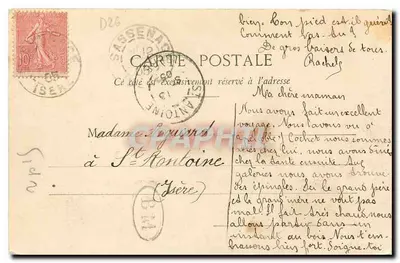 D26
bien. Ton pied est-il guéri
Comment vas-tu?
De gros baisers de tous.
Rachel
SASSENAGE
CARTE POSTALE
Ce côté est exclusivement réservé à l'adresse
ST ANTOINE
ISERE
10
Ma chère maman
Nous avons fait un excellent
voyage. Nous avons vu
Cochet nous sommes
chez lui, nous avons dîné
chez la tante ensuite. Aux
galeries nous avons
des épingles. Si le grand père
et le grand mère ne vont pas
mal. Il fait très chaud nous
allons partir dans un
instant au bois. Nous t'em-
brassons bien fort. Soigne-toi
Madame
à St Antoine
(Isère)
B M
CPARAMA